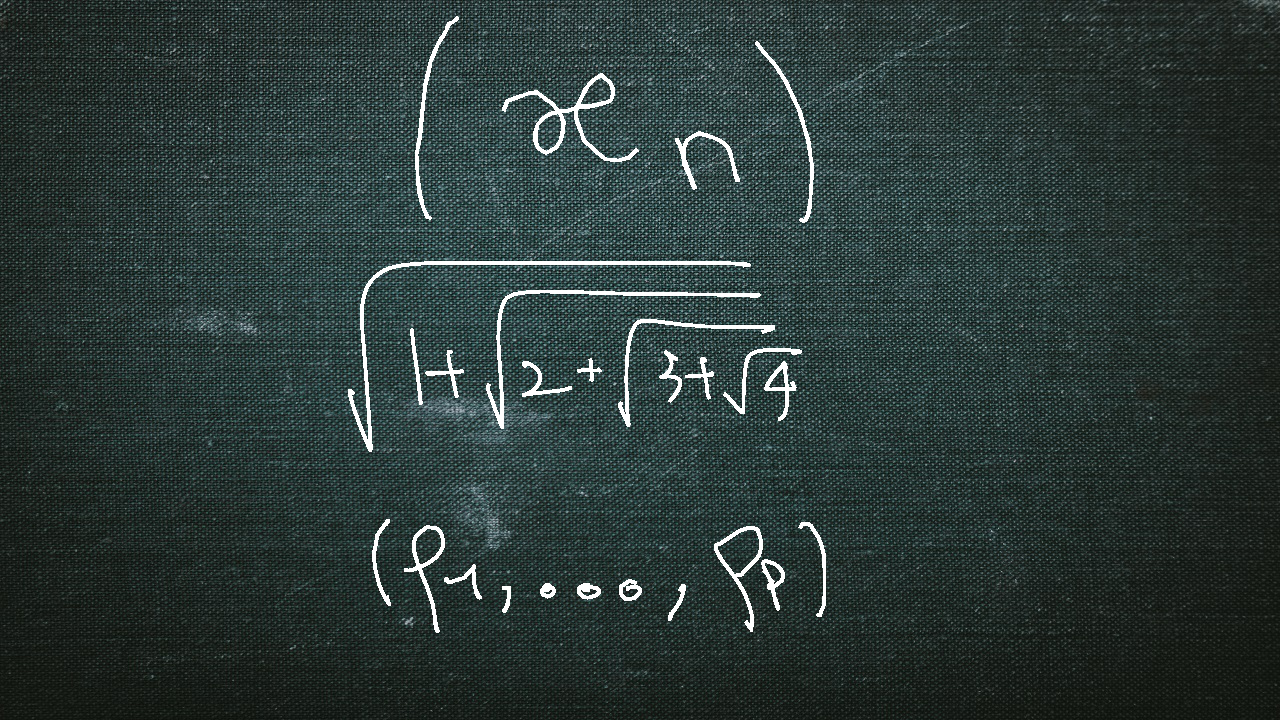 (x_n)
√(1+√(2+√(3+√4)))
(ρ_1, ..., ρ_p)